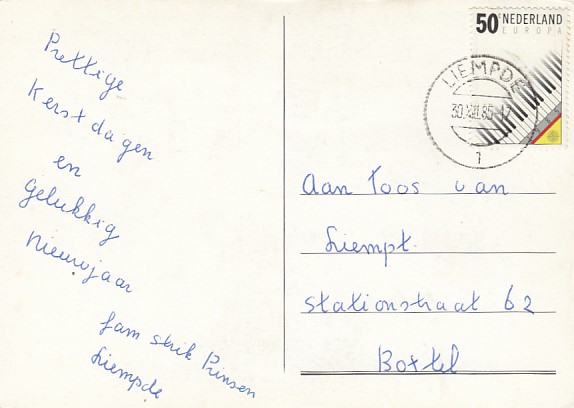 Prettige
Kerstdagen
en
Gelukkig
Nieuwjaar
fam strik Prinsen
Liempde
50c NEDERLAND
EUROPA
LIEMPDE
30.XII.85-17
1
Aan Toos van
Liempt.
stationstraat 62
Boxtel